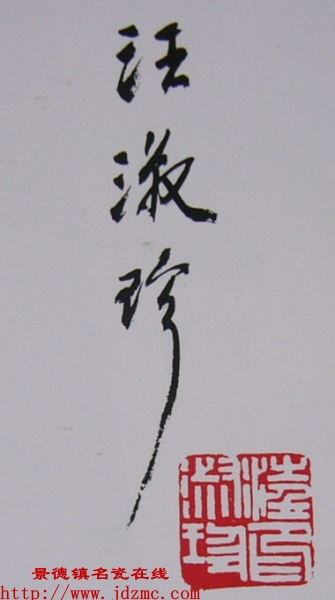 汪淑珍
汪淑珍印
景德镇名瓷在线
http://www.jdzmc.com